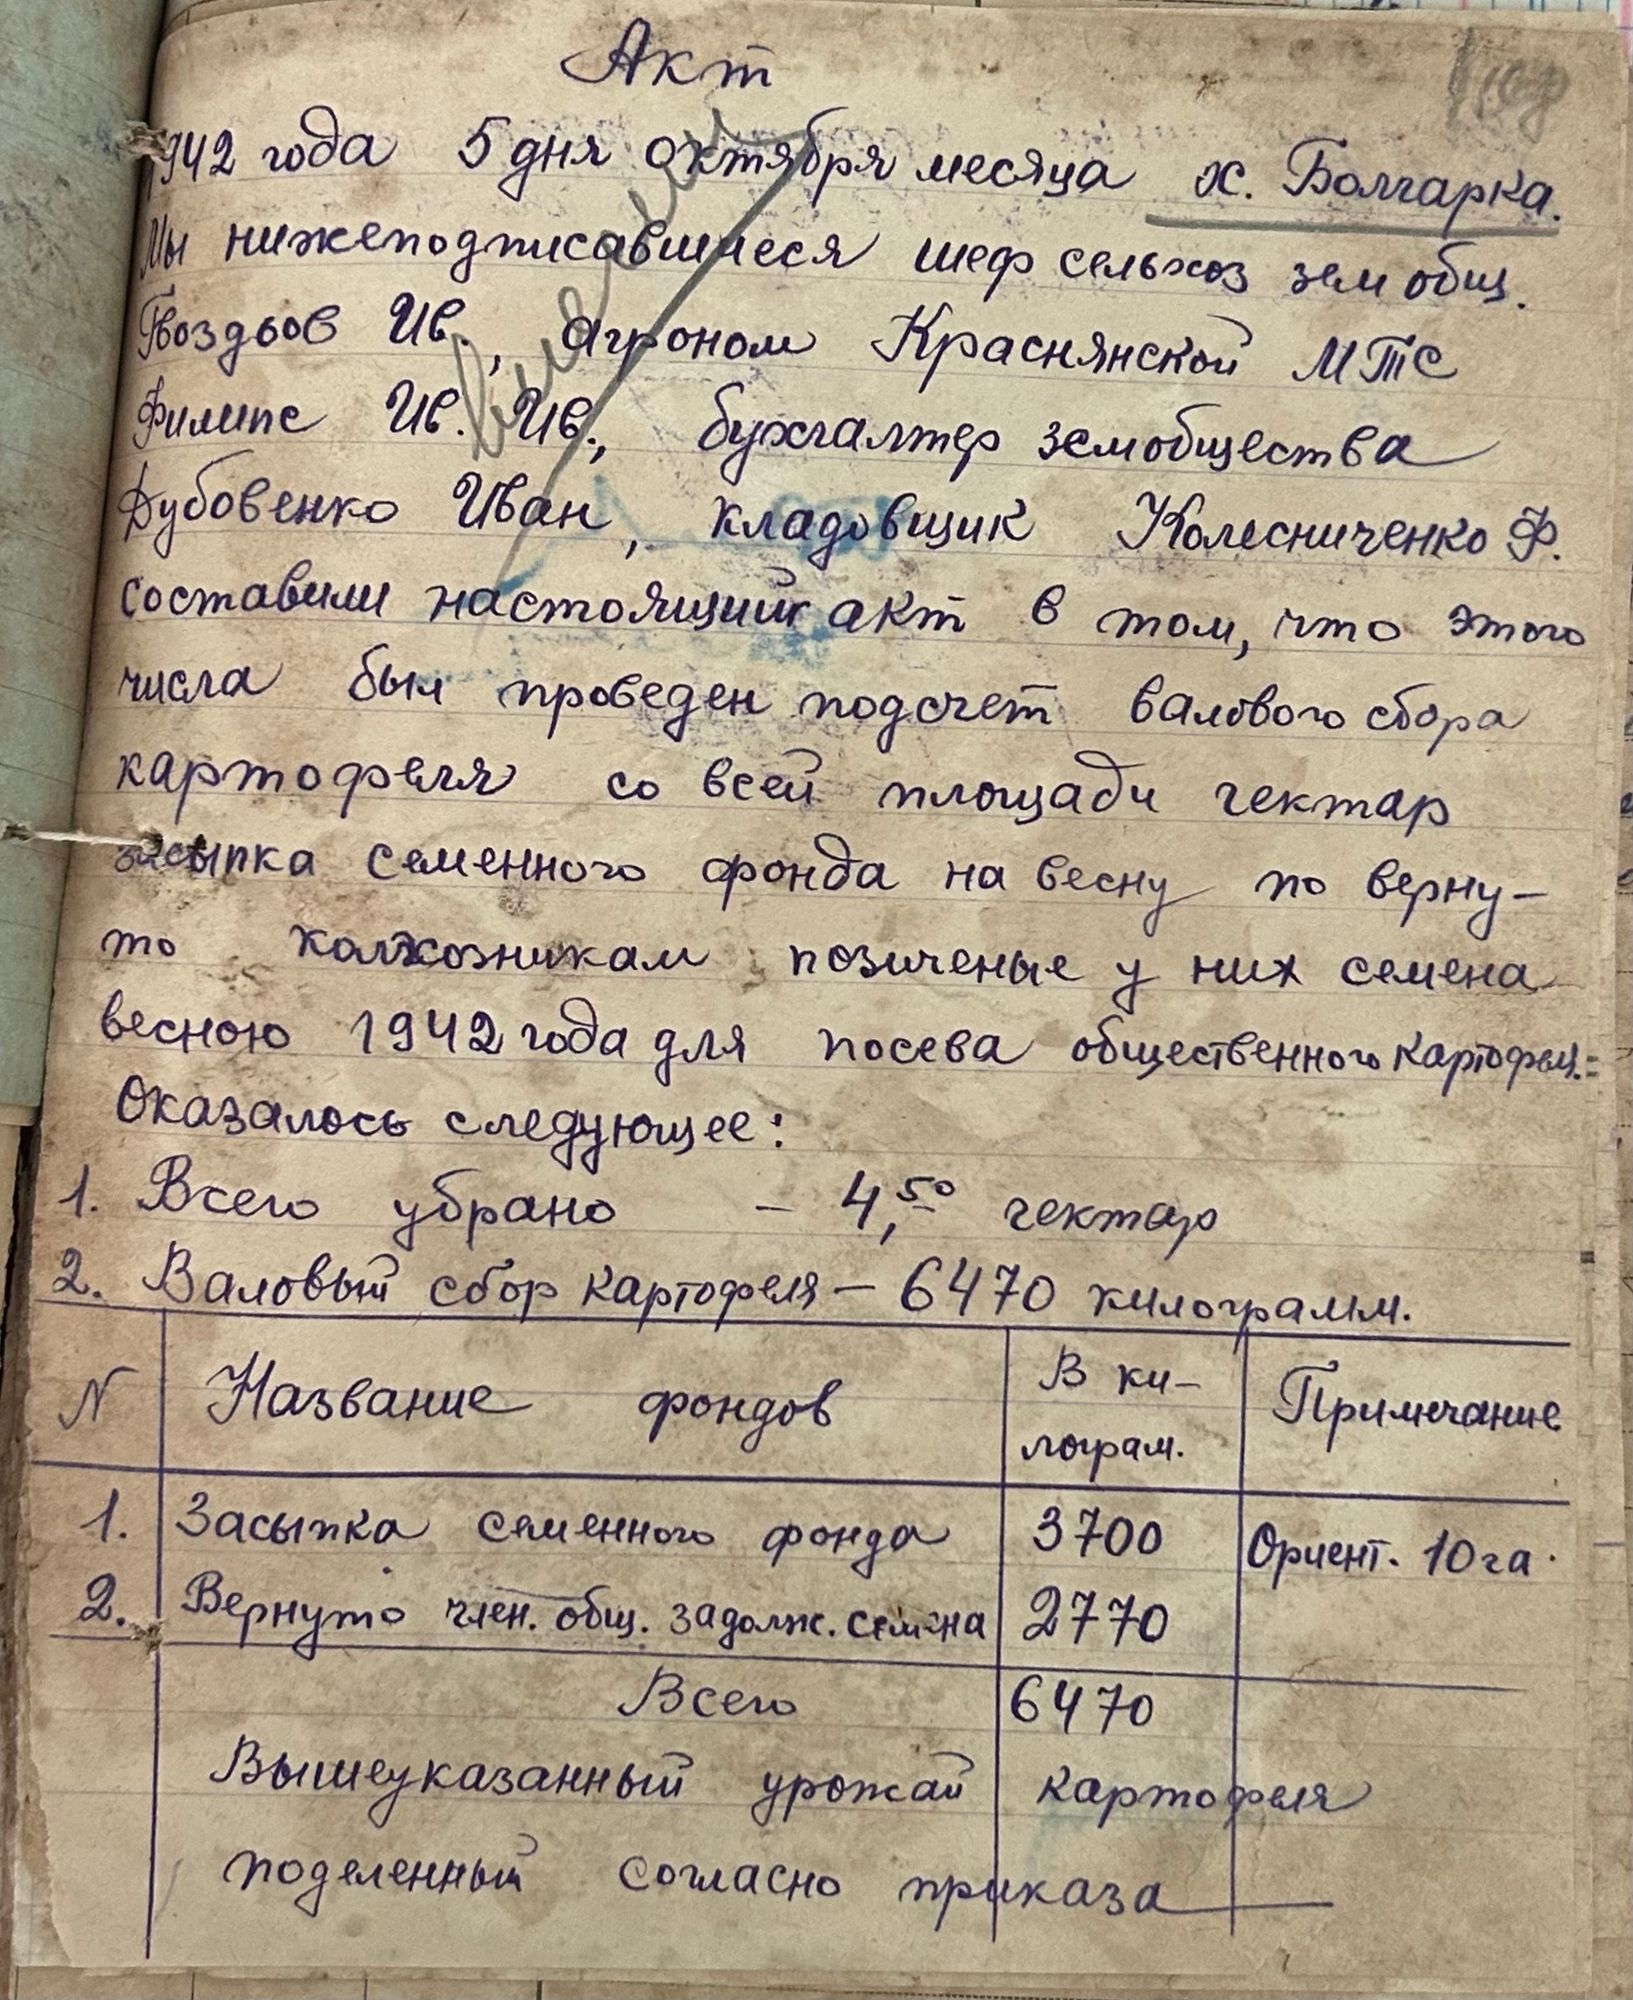 Акт
1942 года 5 дня октября месяца х. Болгарка.
Мы нижеподписавшиеся шеф сельхоз зем общ.
Гвоздьов Ив., агроном Краснянской МТС
Филипс Ив. Ив., бухгалтер земобщества
Дубовенко Иван, кладовщик Колесниченко Ф.
составили настоящий акт в том, что этого
числа был проведен подсчет валового сбора
картофеля со всей площади гектар
засыпка семенного фонда на весну по верну-
то колхозникам позиченые у них семена
весною 1942 года для посева общественного картофел.=
Оказалось следующее:
1. Всего убрано - 4,50 гектар
2. Валовый сбор картофеля - 6470 килограмм.
N Название фондов В ки- Примечание
лограм.
1. Засыпка семенного фонда 3700 Ориент. 10 га.
2. Вернуто член. общ. задолж. семена 2770
Всего 6470
Вышеуказанный урожай картофеля
поделенный согласно приказа